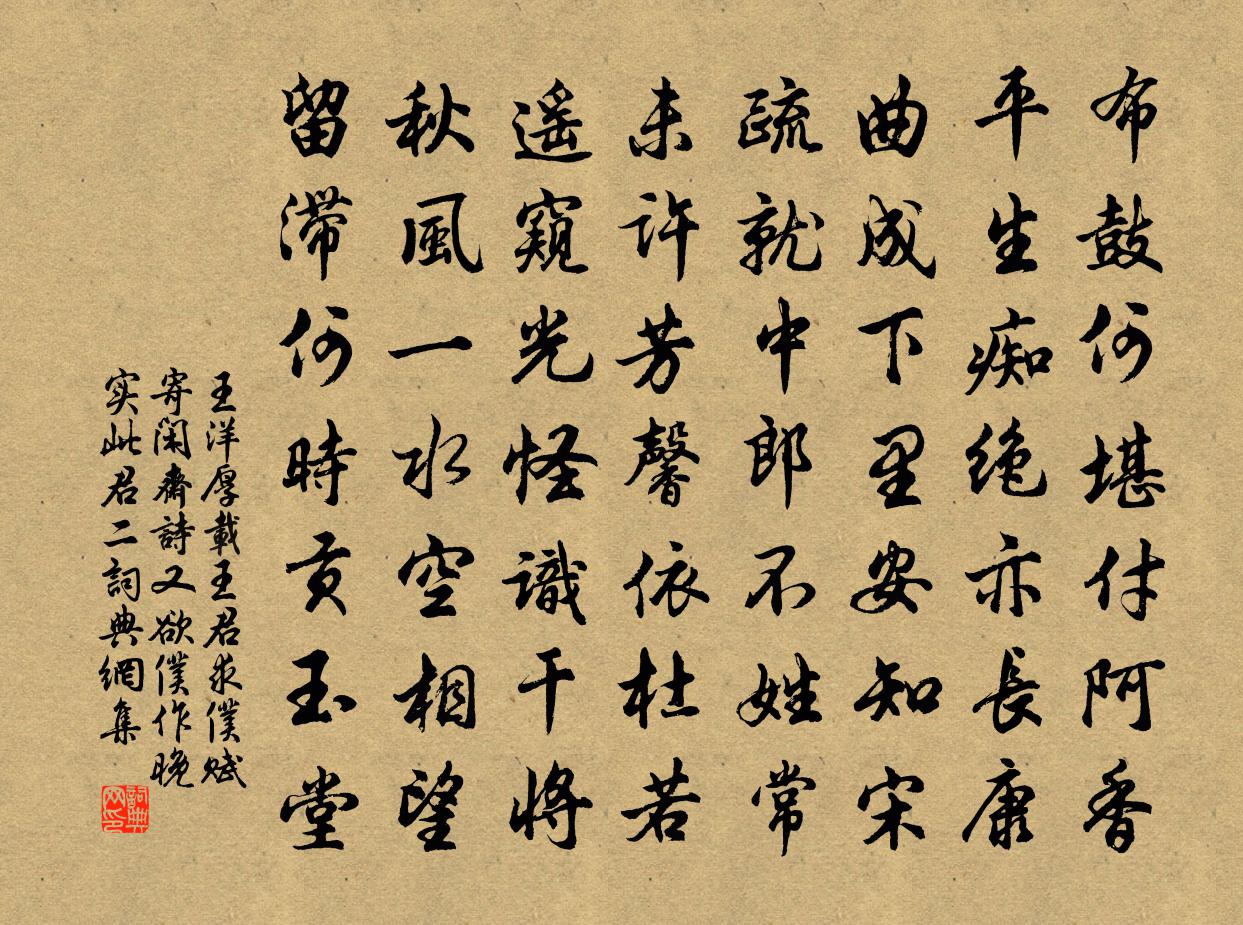 布鼓何堪付阿香
平生痴绝亦長康
曲成下里安知宋
疏就中郎不姓常
未许芳馨依杜若
遥窥光怪識干将
秋風一水空相望
留滞何時贡玉堂
王洋厚載王君求僕赋
寄闲齋詩又欲僕作晚
实此君二詞典網集
詞典网印